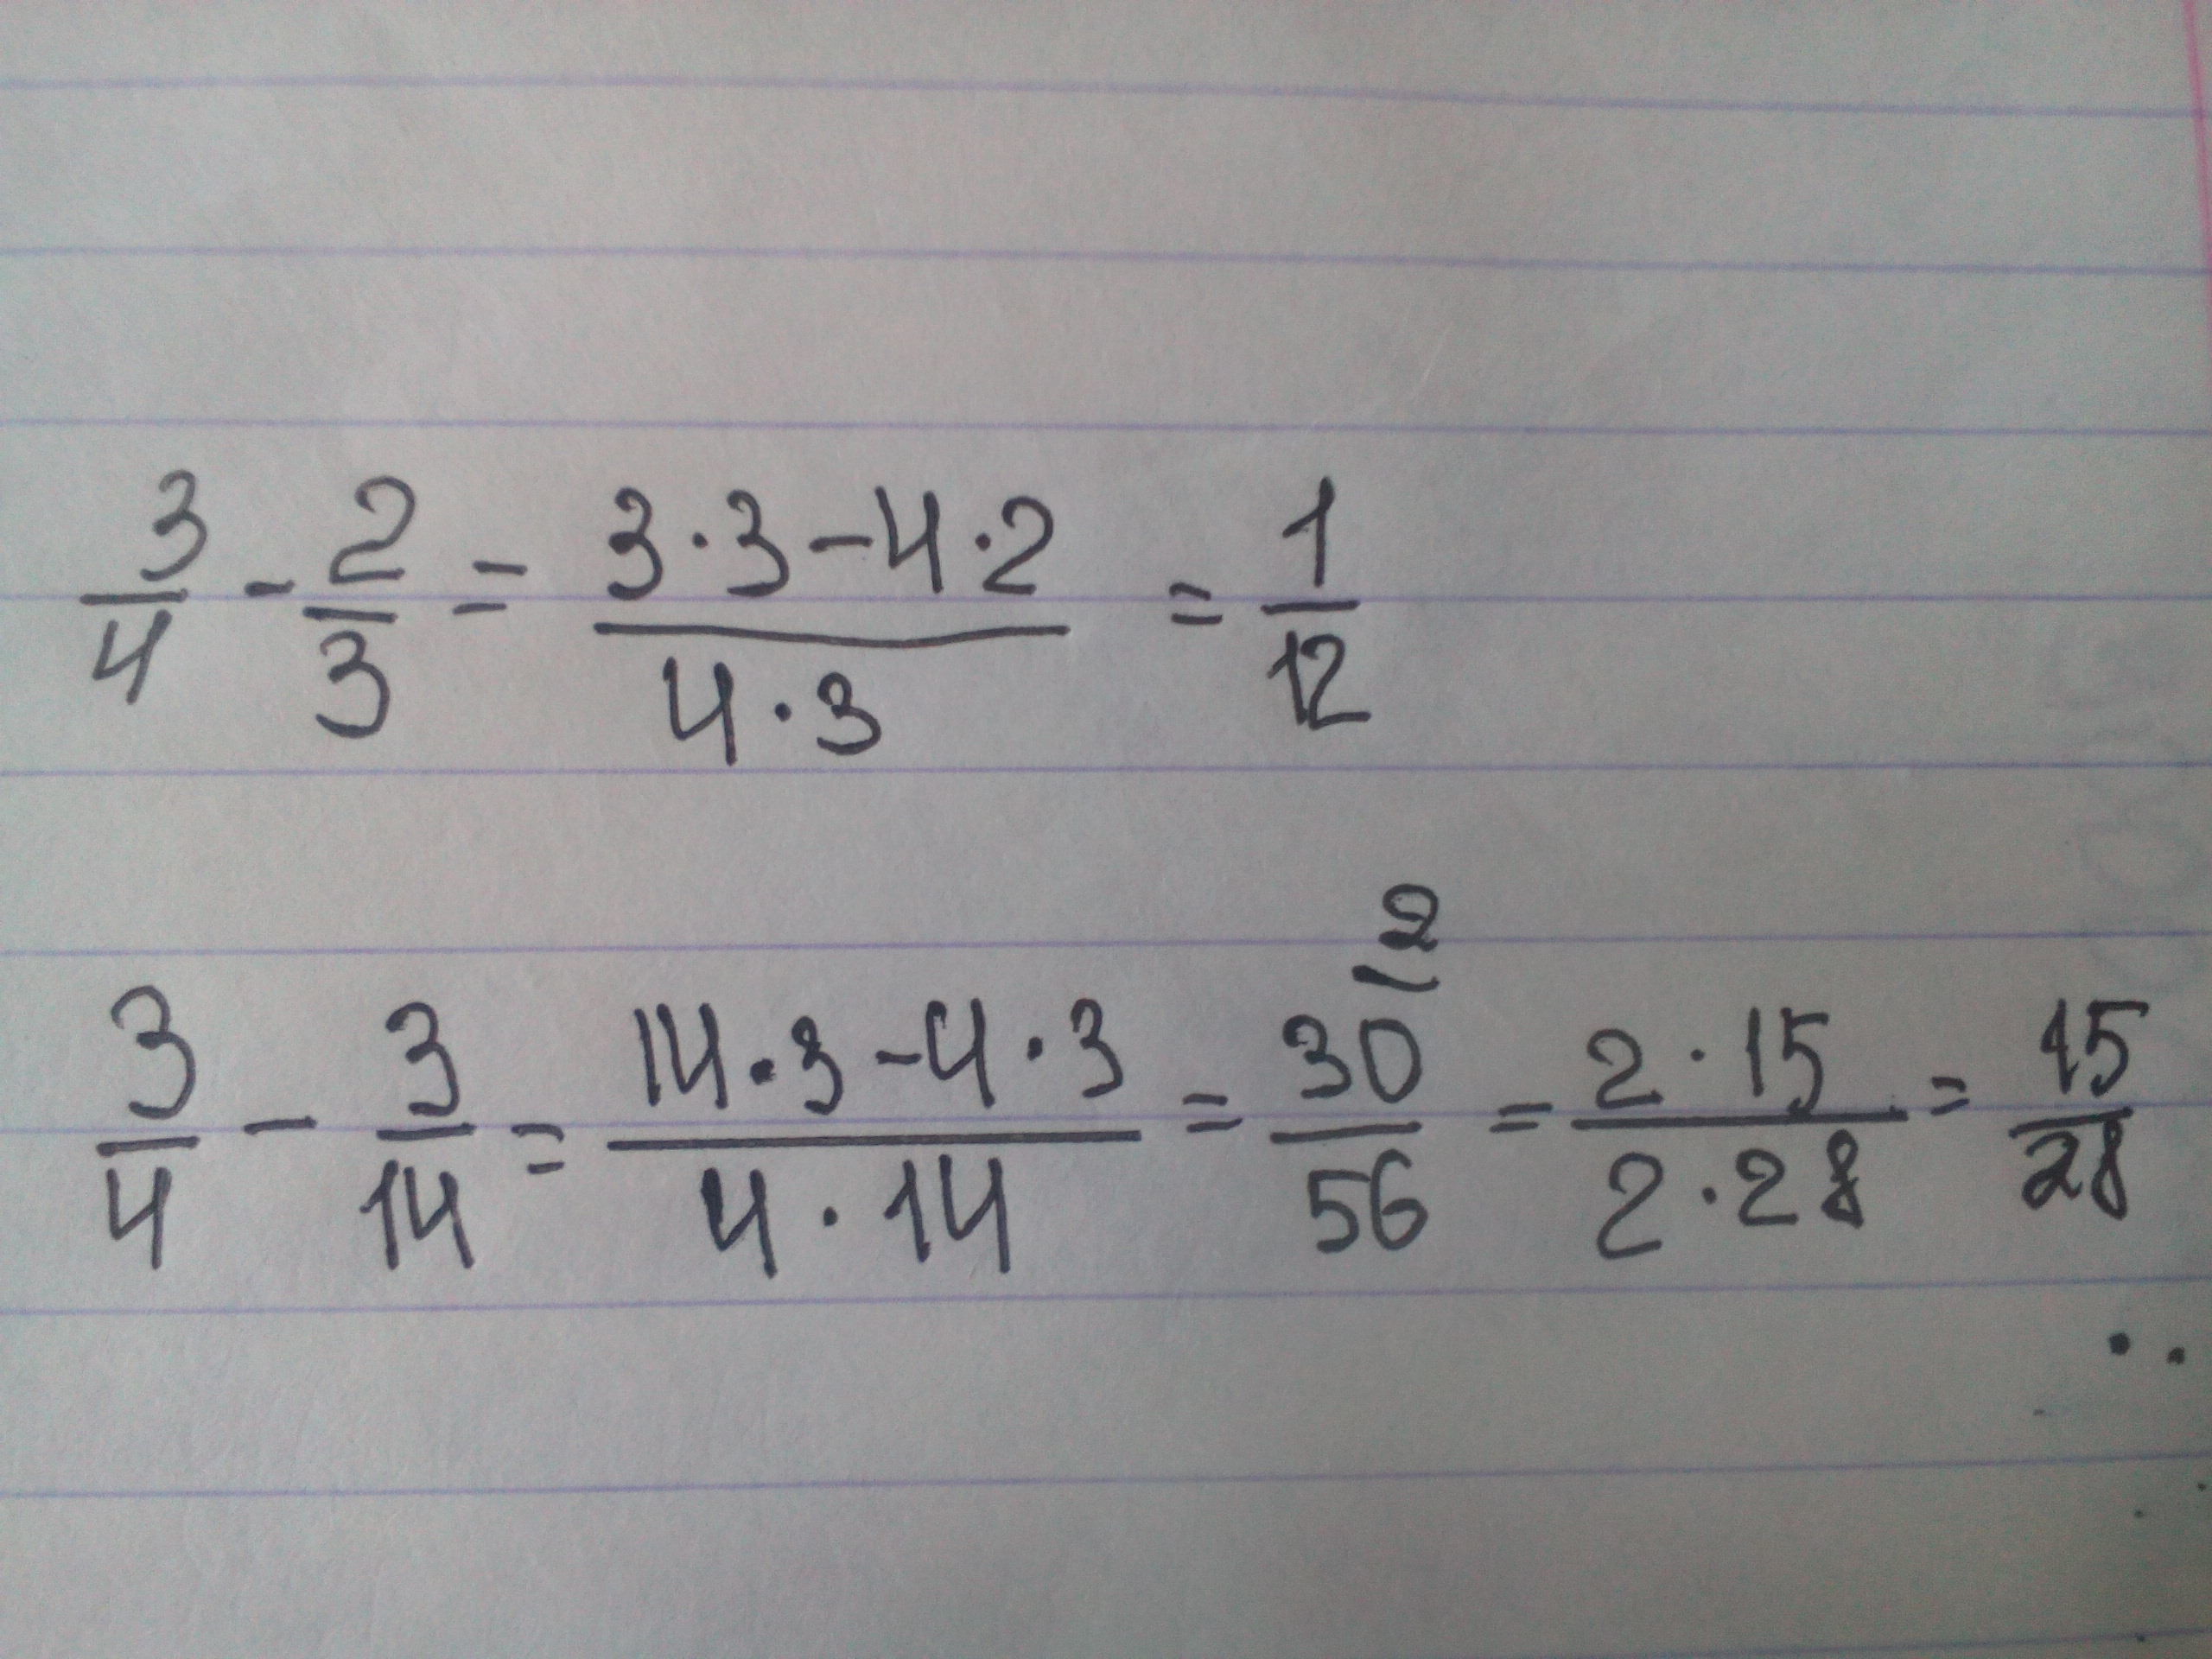 3/4 - 2/3 = (3·3-4·2)/(4·3) = 1/12
3/4 - 3/14 = (14·3-4·3)/(4·14) = 30/56 (2 = (2·15)/(2·28) = 15/28